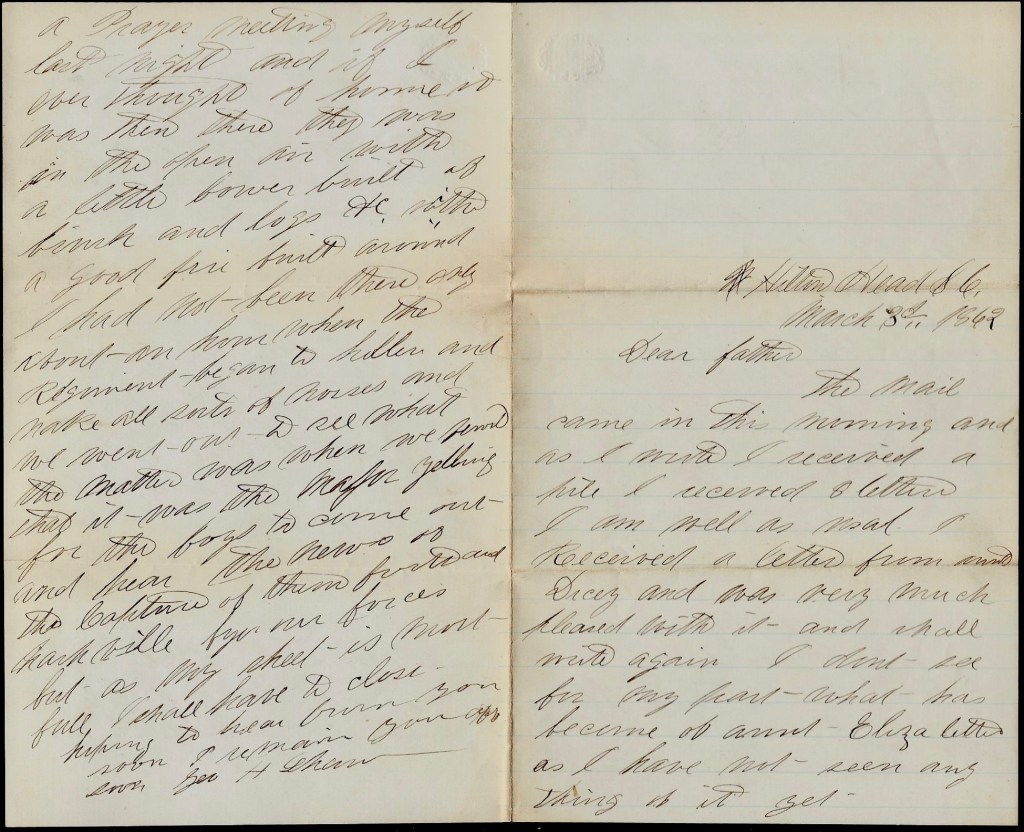 Hilton Head S C,
March 3d,, 1862
Dear father
The mail
came in this morning and
as I wrote I received a
pile I received 8 letters
I am well as usal I
Received a letter from aunt
Dicey and was very much
pleased with it and shall
write again I dont see
for my part what has
become of aunt Eliza letter
as I have not seen any
thing of it yet
a Prayer meeting myself
last night and if I
ever thought of home it
was then there they was
in the open air with
a little bower built of
brush and logs &c, with
a good fire built around
I had not been there only
about an hour when the
Regiment began to hollen and
make all sorts of noises and
we went out to see what
the matter was when we found
that it was the Major yelling
for the boys to come out
and hear the news of
the Capture of them forts and
Nashville by our forces
but as my sheet is most
full I shall have to close
hoping to hear from you
soon I remain your
son Geo H Shaw